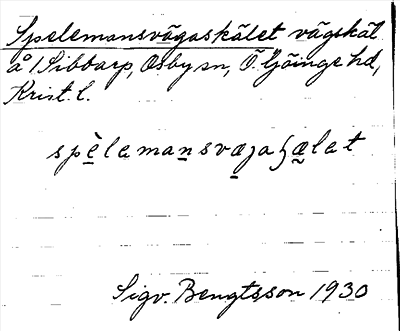 Spelemansvägaskälet vägskäl
å /Sibbarp, Osby sn, Ö. Göinge hd,
Krist. l.
spèlemansvæjaʒælet
Sigv. Bengtsson 1930